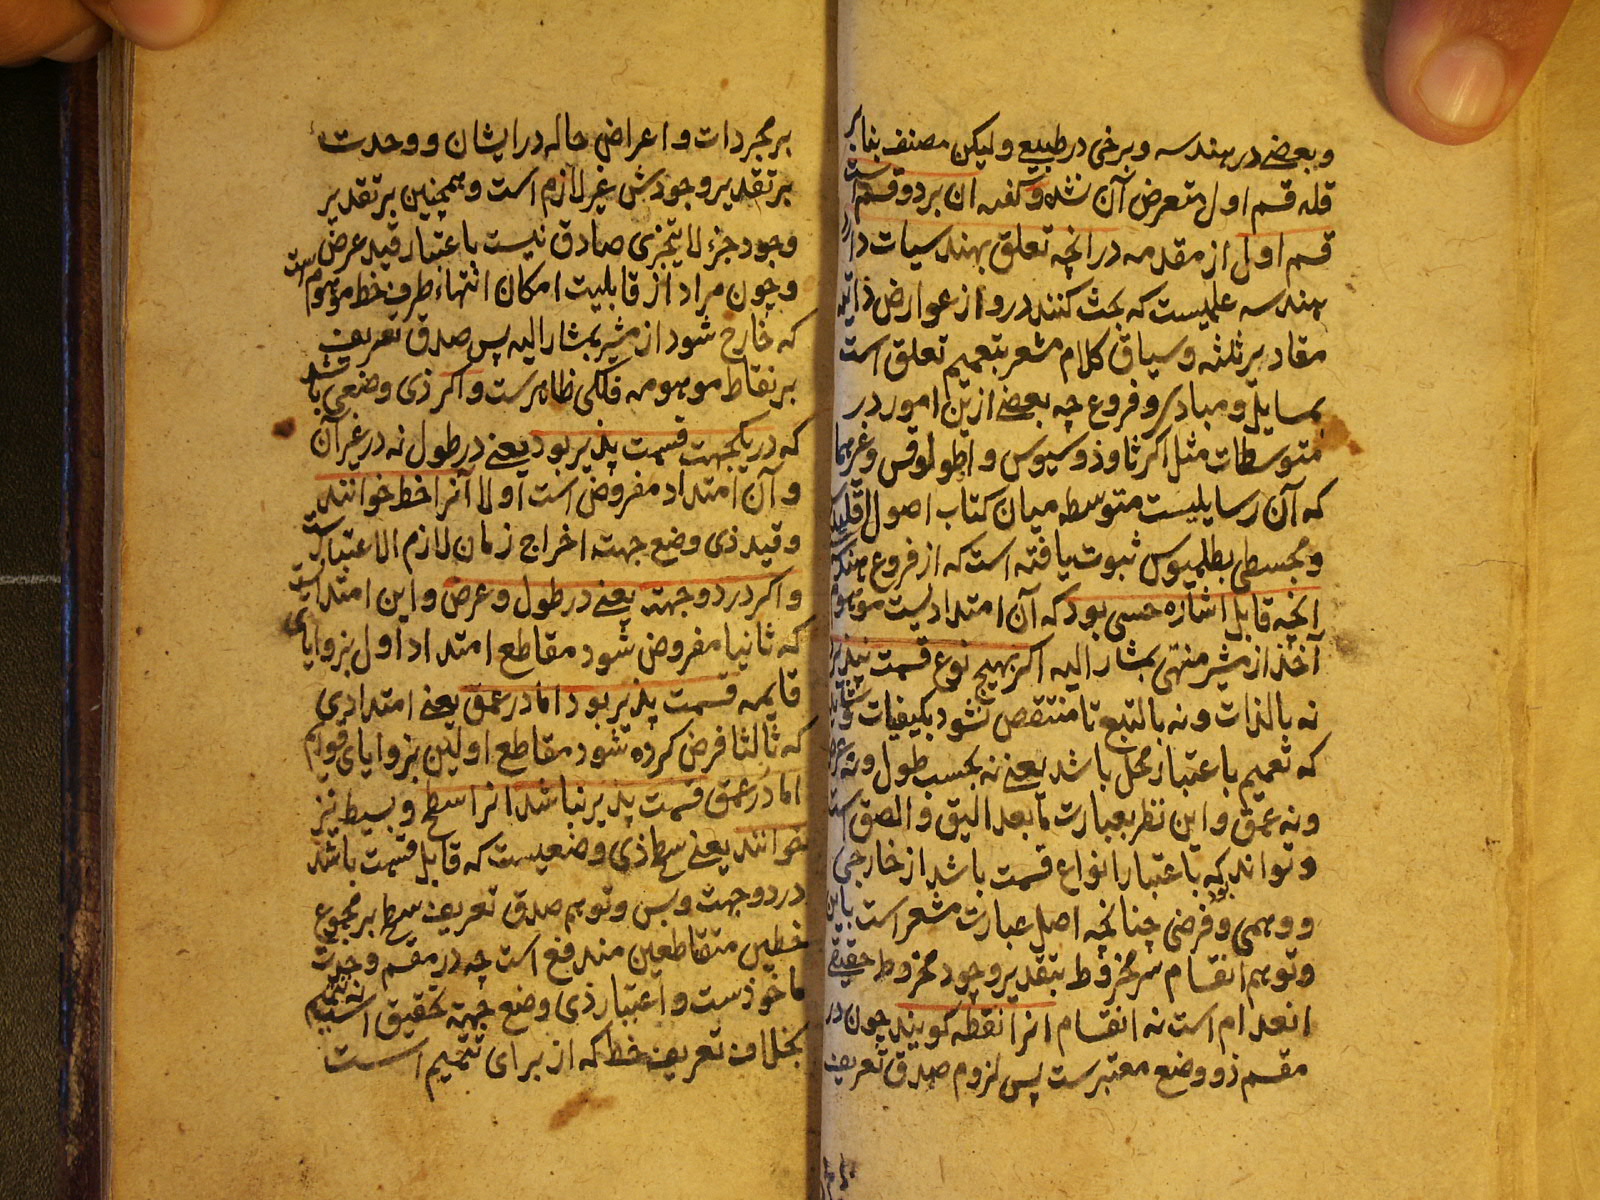 وبعضے در هندسه وبرخی در طبیعے ولیکن مصنف بنا بر
قله قسم اول متعرض آن نشده وگفته ان بر دو قسم است
قسم اول از مقدمه در انچه تعلق بهندسیات دارد
هندسه علمیست که بحث کنند درو از عوارض ذاتیه
مقادیر ثلثه وسیاق کلام مشعر بتعمیم تعلق است
بمسایل ومبادی وفروع چه بعضے ازین امور در
متوسطات مثل اکر ثاوذوسیوس واطولوقس وغیرهما
که آن رسایلیست متوسطه میان کتاب اصول اقلیدس
ومجسطی بطلمیوس ثبوت یافته است که از فروع هندسه
انچه قابل اشاره حسی بود که آن امتدادیست موهوم
آخذ از مشیر منتهی بمشار الیه اگر بهیچ نوع قسمت پذیر
نه بالذات ونه بالتبع تا منتقض نشود بکیفیات
که تعمیم باعتبار محل باشد یعنے نه بحسب طول ونه عرض
ونه عمق واین نظر بعبارت مابعد الیق والصق است
وتواند بود که باعتبار انواع قسمت باشد از خارجی
ووهمی وفرضی چنانچه اصل عبارت مشعر است باین
وتوهم انقسام سر مخروط بتقدیر وجود مخروط حقیقے
انعدام است نه انقسام انرا نقطه گویند چون در
مقسم ذو وضع معتبرست پس لزوم صدق تعریف
بر مجردات واعراض حاله در ایشان ووحدت
بر تقدیر وجودش غیر لازم است وهمچنین بر تقدیر
وجود جزء لا یتجزی صادق نیست باعتبار قید عرض
وچون مراد از قابلیت امکان انتهاء طرف خط موهوم است
که خارج شود از مشیر بمشار الیه پس صدق تعریف
بر نقاط موهومه فلکی ظاهرست واگر ذی وضعی باشد
که در یکجهت قسمت پذیر بود یعنے در طول نه در غیر آن
وآن امتداد مفروض است اولا آنرا خط خوانند
وقید ذی وضع جهت اخراج زمان لازم الاعتبار است
واگر در دو جهت یعنے در طول وعرض واین امتدادیست
که ثانیا مفروض شود مقاطع امتداد اول بزوایای
قایمه قسمت پذیر بود اما در عمق یعنے امتدادی
که ثالثا فرض کرده شود مقاطع اولین بزوایای قوایم
اما در عمق قسمت پذیر نباشد انرا سطح وبسیط نیز
خوانند یعنے سطح ذی وضعیست که قابل قسمت باشد
در دو جهت وبس وتوهم صدق تعریف سطح بر مجموع
خطین متقاطعین مندفع است چه در مقسم وحدت
ماخوذست واعتبار ذی وضع جهت تحقیق است نه تتمیم
بخلاف تعریف خط که از برای تتمیم است